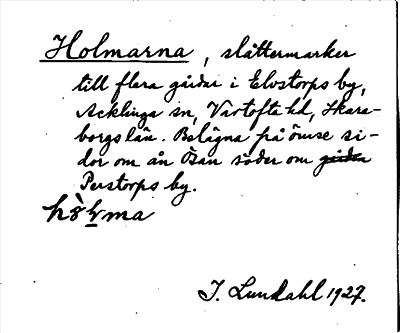 Holmarna, slåttermarker
till flera gårdar i Elvstorps by,
Acklinga sn, Vartofta hd, Skara-
borgs län. Belägna på ömse si-
dor om ån Ösan söder om
Perstorps by.
I. Lundahl 1927.